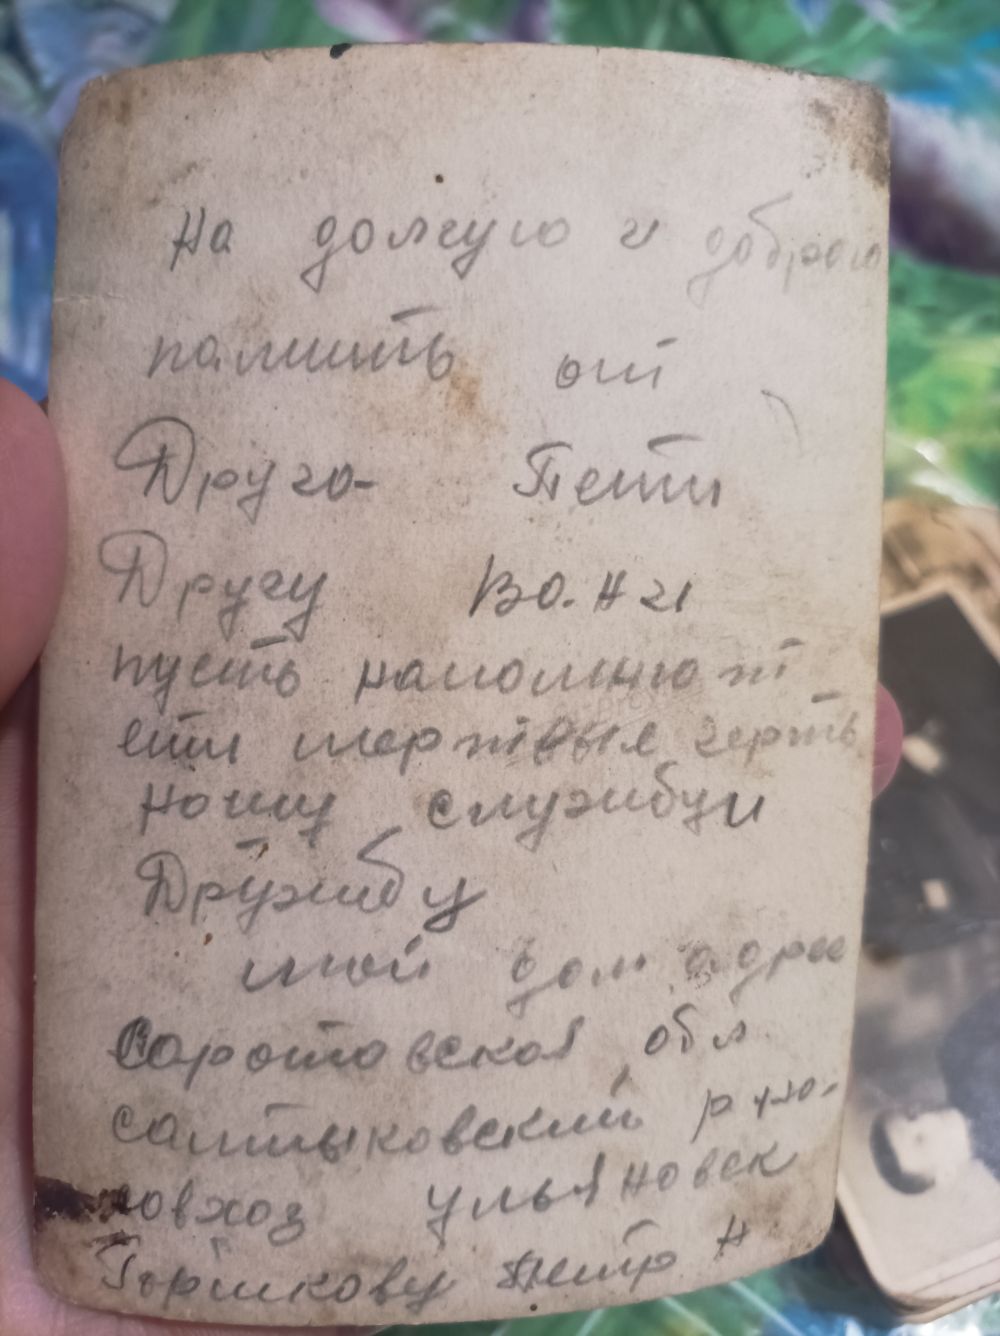 на долгую и доброю
памить от
Друга- Пети
Другу Ва.Ни
пусть напомнют
ети мертвые черты
нашу службу и
Дружбу
мой дом адрес
Саротовская обл
салтыковский
совхоз ульяновск
Горшкову Петр Н